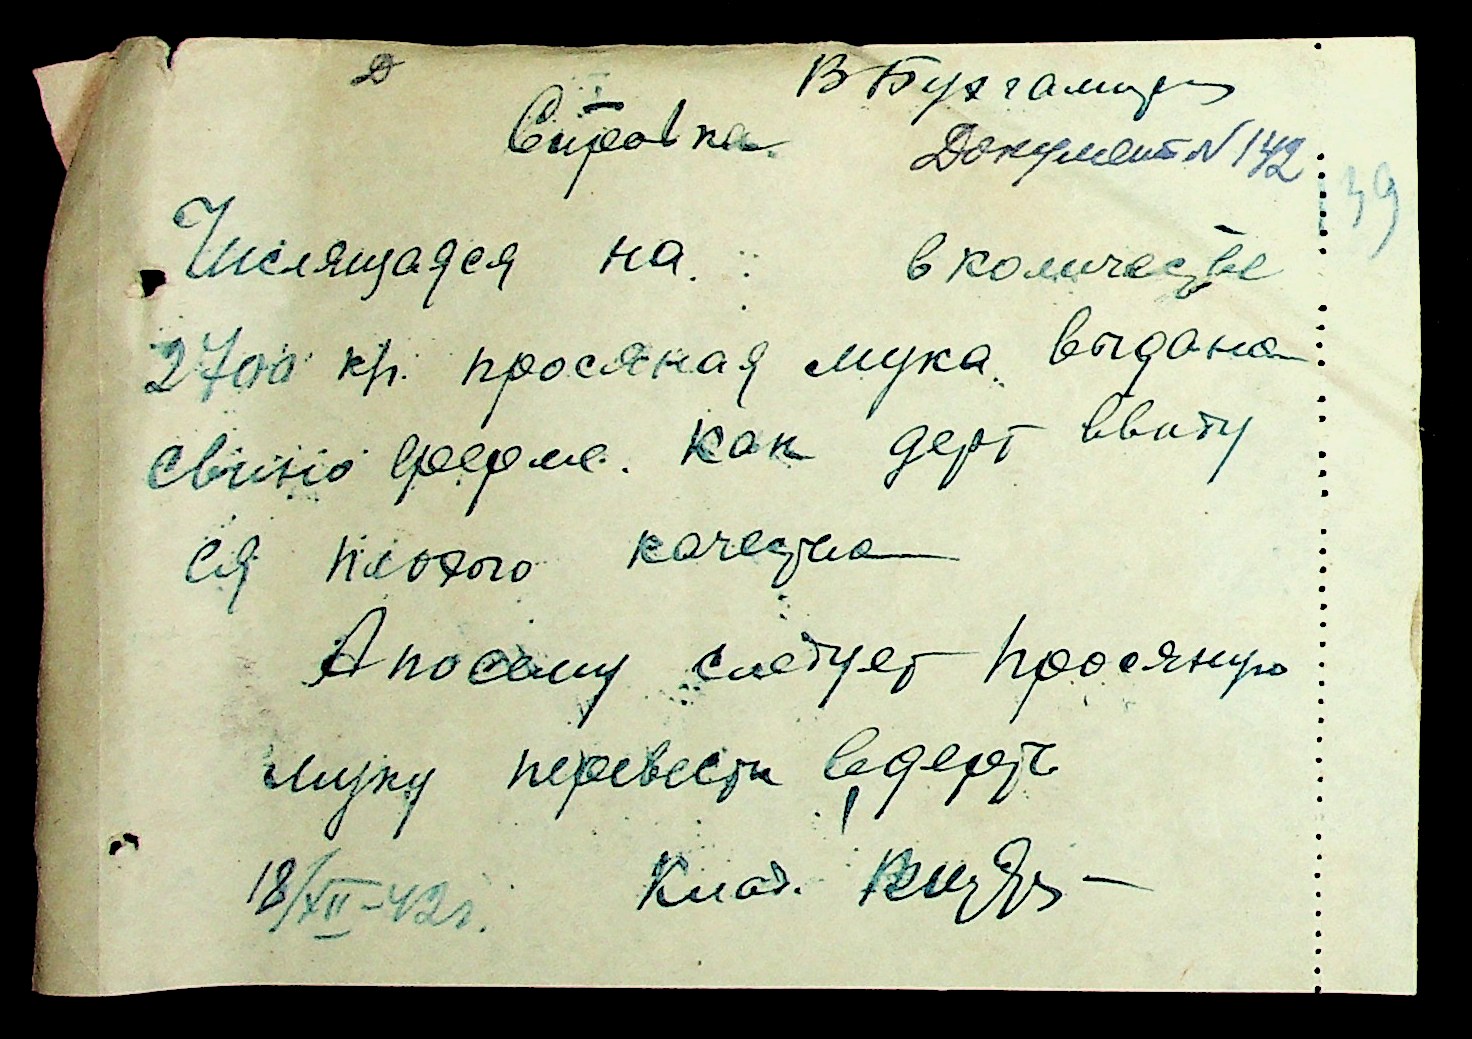 Д
В Бухгалтер
Справка
Документ № 142
139
Числящаяся на в количестве
2700 кг. просяная мука выдана
свино ферме. Как дерт ввиту
ся плохого качества
А посему следует просяную
муку перевести в дерть
18/XII-42 г. Клад.